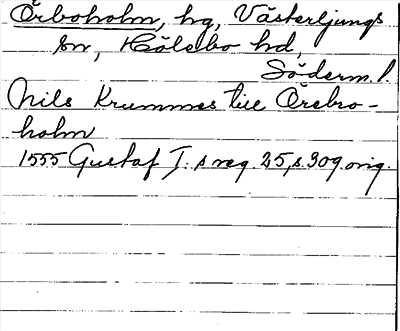 Örboholm, hg, Västerljungs
sn, Hölebo hd,
Söderm.l.
Nils Krummes till Örebro-
holm
1555 Gustaf I:s reg. 25, s. 309. orig.